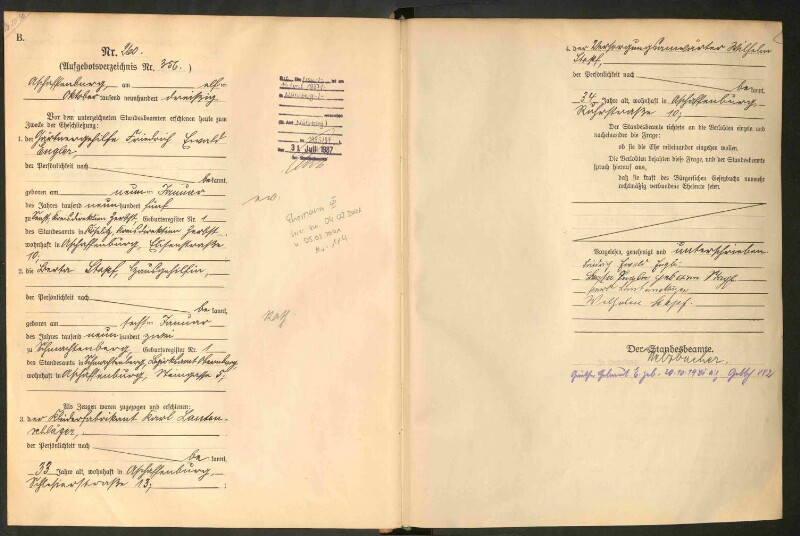 B.
Nr. 260.
(Aufgebotsverzeichnis Nr. 356.)
Aschaffenburg, am elf-
Oktober tausend neunhundert dreißig
Vor dem unterzeichneten Standesbeamten erschienen heute zum
Zwecke der Eheschließung:
1. der Gärtnergehilfe Friedrich Ewald
Engler,
der Persönlichkeit nach
be kannt,
geboren am neun- Januar
des Jahres tausend neun hundert fünf
zu Kreisdirektion Zerbst, Geburtsregister Nr. 1
des Standesamts in Kreisdirektion Zerbst
wohnhaft in Aschaffenburg, Elisenstrasse
10,
2. die Berta Stapf, Hausgehilfin,
der Persönlichkeit nach
be kannt,
geboren am sechs- Januar
des Jahres tausend neun hundert zwei
zu Schmachtenberg, Geburtsregister Nr. 1
des Standesamts in Schmachtenberg,
wohnhaft in Aschaffenburg, Steingasse 5,
Als Zeugen waren zugezogen und erschienen:
3. der Kleiderfabrikant Karl Lauten-
schläger,
der Persönlichkeit nach
be kannt,
33 Jahre alt, wohnhaft in Aschaffenburg,
Schlesierstraße 13;
31. Juli 1987
ev.
Ehemann
04.02.2001
05.02.2001
Nr. 114
Kath
4. der Versorgungsanwärter Wilhelm
Stapf,
der Persönlichkeit nach
be kannt,
34 Jahre alt, wohnhaft in Aschaffenburg,
Ruhrstraße 10;
Der Standesbeamte richtete an die Verlobten einzeln und
nacheinander die Frage:
ob sie die Ehe miteinander eingehen wollen.
Die Verlobten bejahten diese Frage, und der Standesbeamte
sprach hierauf aus,
daß sie kraft des Bürgerlichen Gesetzbuchs nunmehr
rechtmäßig verbundene Eheleute seien.
Vorgelesen, genehmigt und unterschrieben
Friedrich Ewald Engler
Engler, geborene Stapf
Karl Lautenschläger
Wilhelm Stapf.
Der Standesbeamte.